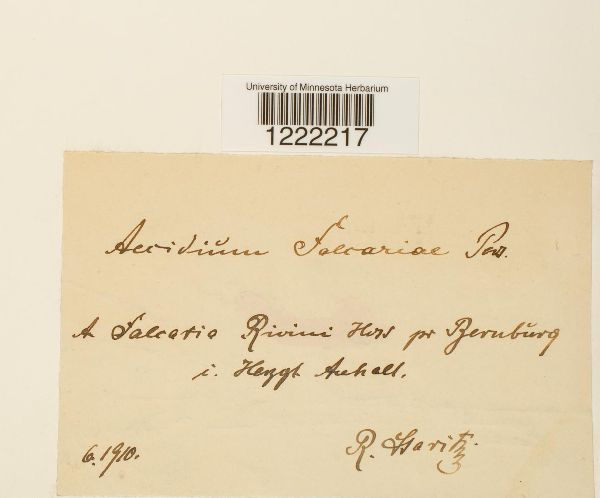 University of Minnesota Herbarium
1222217
Aecidium Falcariae Pers.
A Falcaria Rivini Host pr Bernburg
i. Herzgt Anhalt.
6. 1910.
R. Staritz.